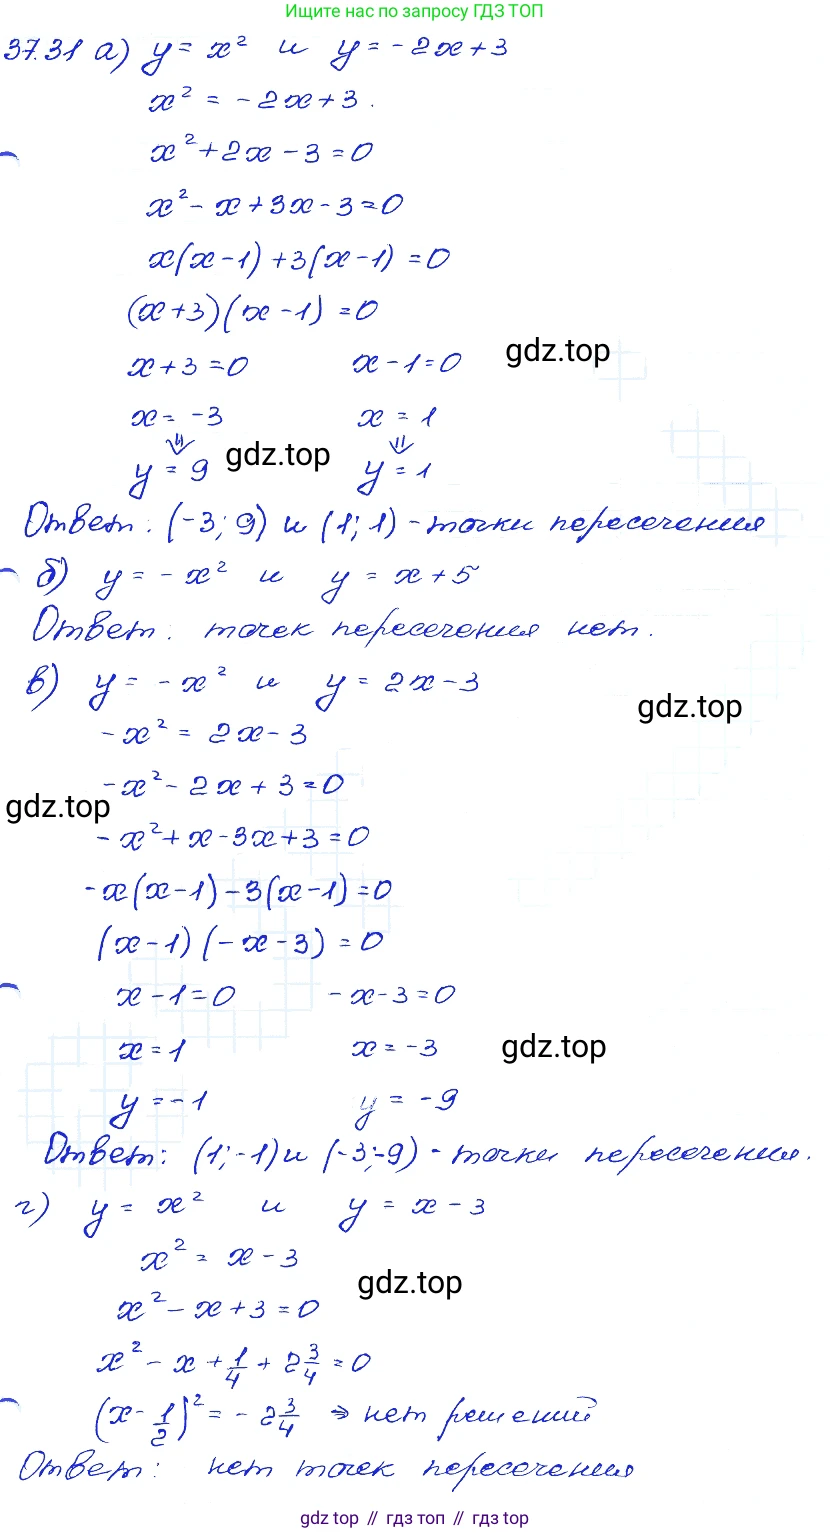 Ищите нас по запросу ГДЗ ТОП
37.31 а) y = x² и y = -2x + 3
x² = -2x + 3.
x² + 2x - 3 = 0
x² - x + 3x - 3 = 0
x(x - 1) + 3(x - 1) = 0
(x + 3)(x - 1) = 0
x + 3 = 0 x - 1 = 0 gdz.top
x = -3 x = 1
⇓ ⇓
y = 9 gdz.top y = 1
Ответ: (-3; 9) и (1; 1) - точки пересечения
б) y = -x² и y = x + 5
Ответ: точек пересечения нет.
в) y = -x² и y = 2x - 3
gdz.top
-x² = 2x - 3
-x² - 2x + 3 = 0
gdz.top
-x² + x - 3x + 3 = 0
-x(x - 1) - 3(x - 1) = 0
(x - 1)(-x - 3) = 0
x - 1 = 0 -x - 3 = 0
x = 1 x = -3 gdz.top
y = -1 y = -9
Ответ: (1; -1) и (-3; -9) - точки пересечения.
г) y = x² и y = x - 3
x² = x - 3
gdz.top
x² - x + 3 = 0
x² - x + 1/4 + 2 3/4 = 0
(x - 1/2)² = -2 3/4 ⇒ нет решений
Ответ: нет точек пересечения
gdz top // гдз топ // gdz top